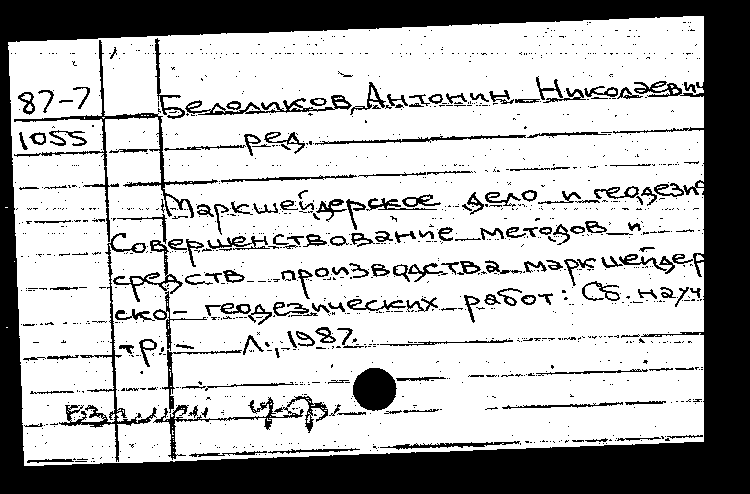 87-7 Белоликов, Антонин Николаевич
1055 ред.
Маркшейдерское дело и геодезия
Совершенствование методов и
средств производства маркшейдер
ско-геодезических работ: Сб. науч
тр. – Л., 1987.
взамен